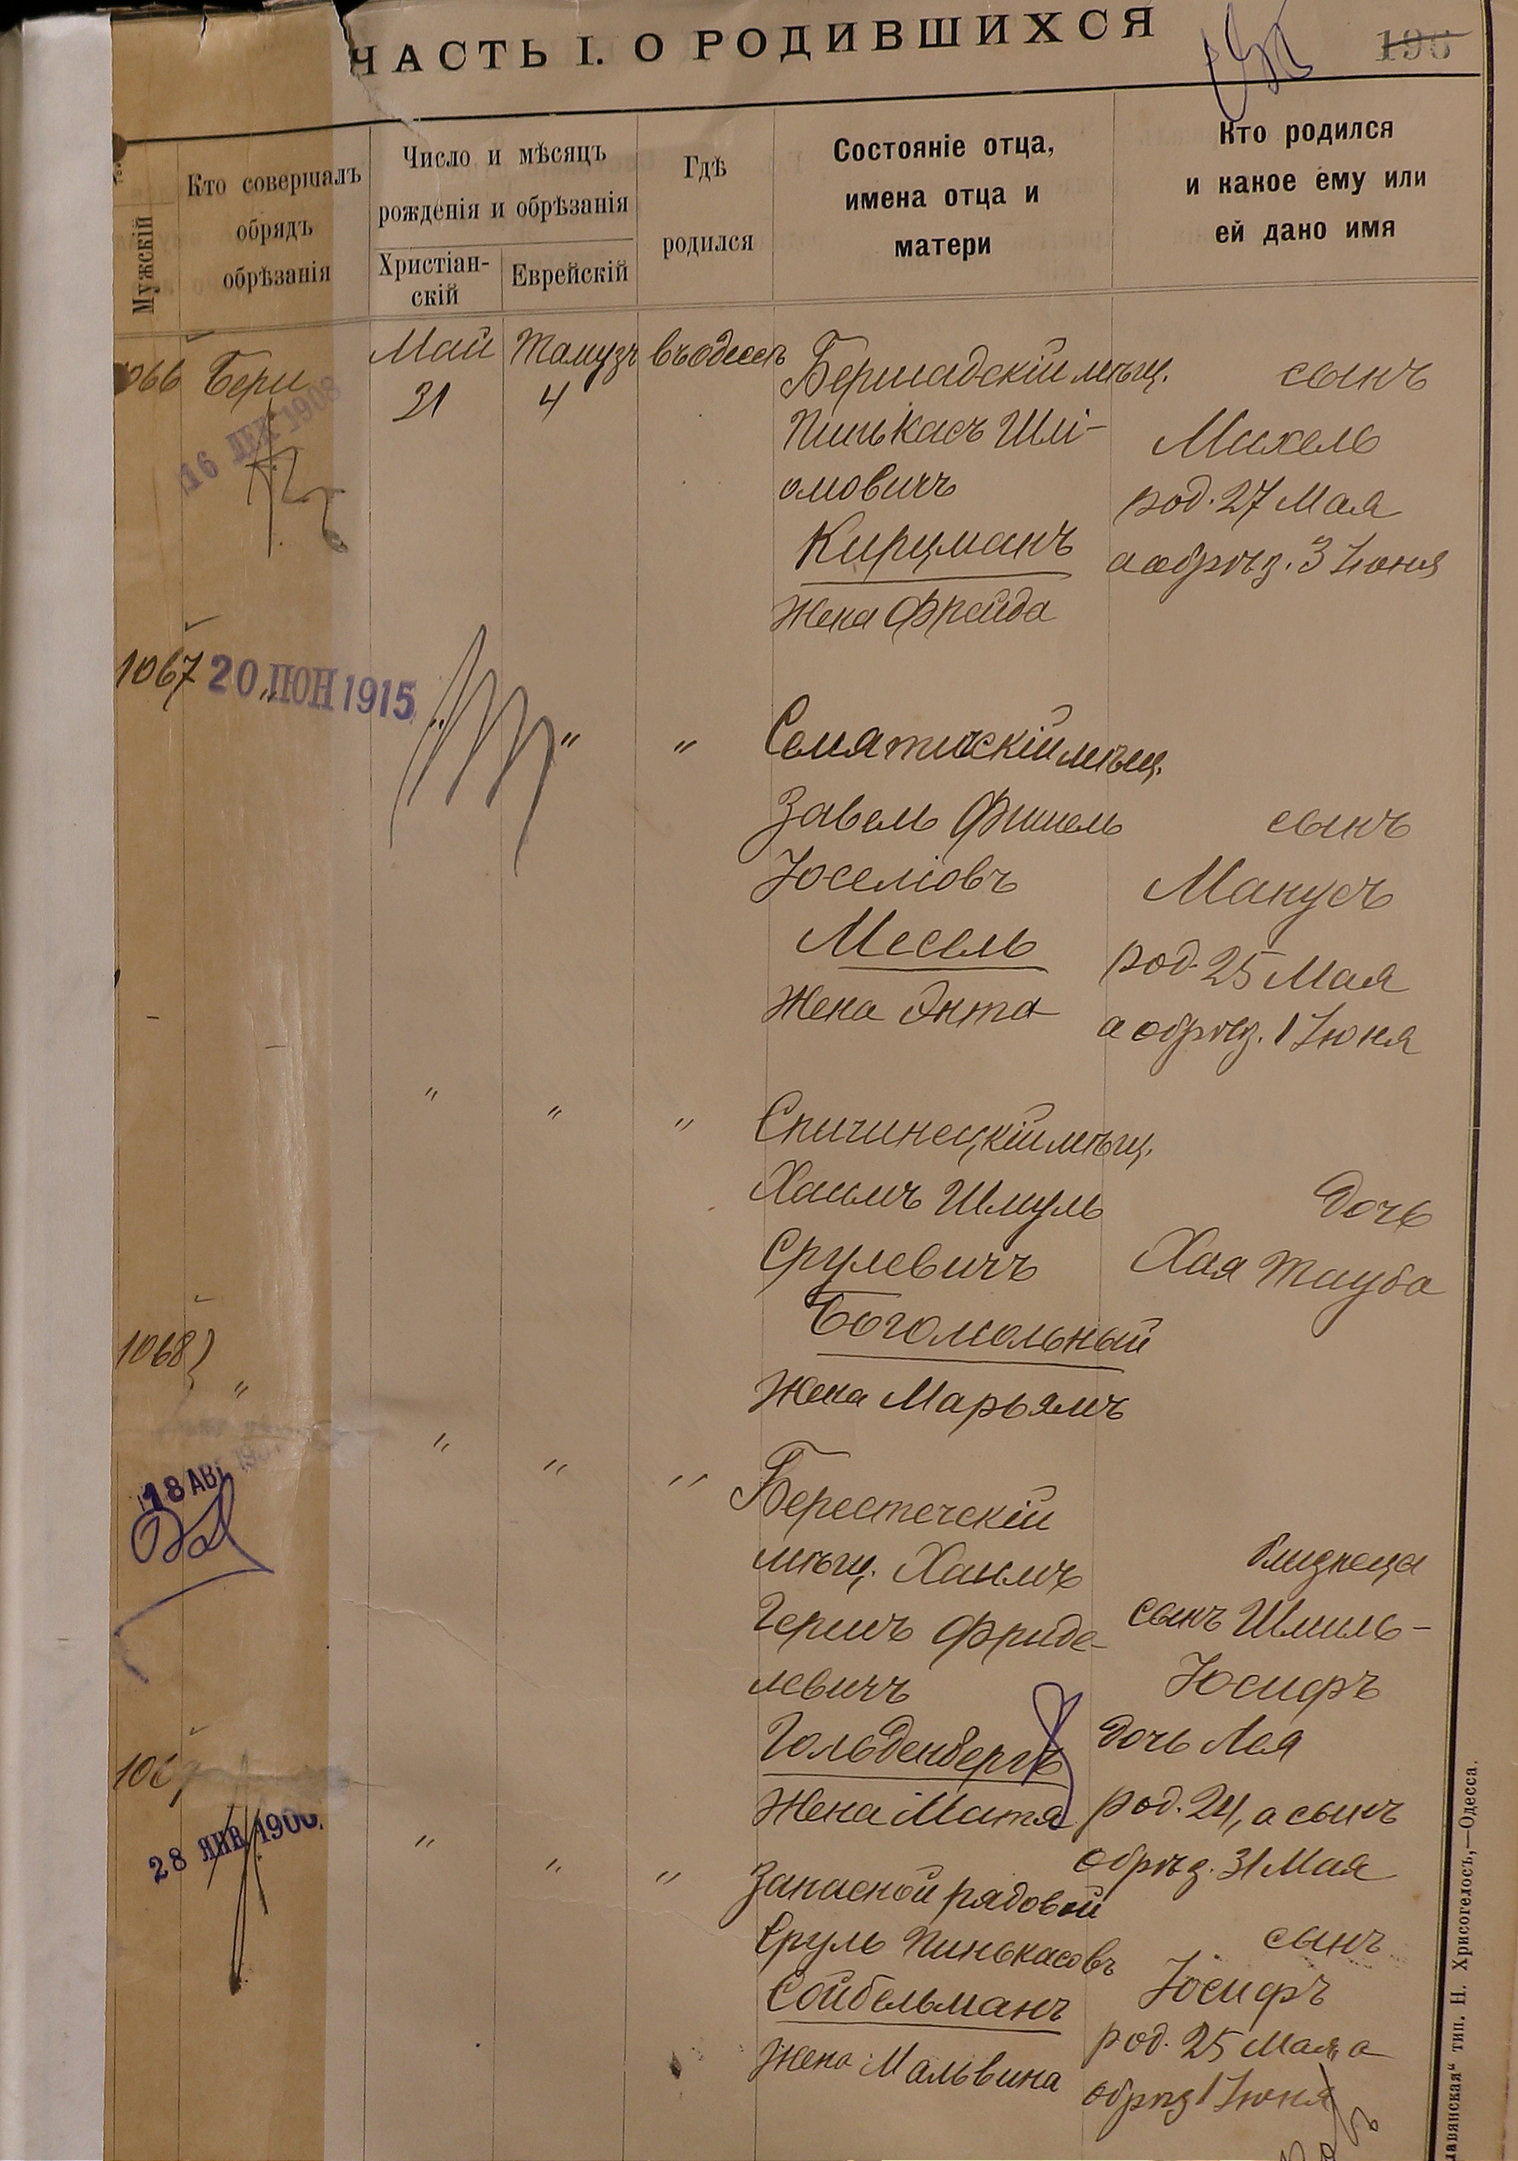 ЧАСТЬ I. О РОДИВШИХСЯ
196
Мужскій
Кто совершалъ
обрядъ
обрѣзанія
Число и мѣсяцъ
рожденія и обрѣзанія
Христіан-
скій
Еврейскій
Гдѣ
родился
Состояніе отца,
имена отца и
матери
Кто родился
и какое ему или
ей дано имя
1066 Бери
16 ДЕК 1908
Май
31
Тамузъ
4
въ Одессѣ
Бершадскій мѣщ.
Пинькасъ Шлі-
омовичъ
Кирцманъ
Жена Фрейда
сынъ
Михель
род. 27 Мая
а обрѣз. 3 Іюня
1067 "
20 ІЮН 1915
" " "
Семятическій мѣщ.
Завель Фишель
Іоселіовъ
Месель
Жена Энта
сынъ
Манусъ
род. 25 Мая
а обрѣз. 1 Іюня
" " "
Спичинецкій мѣщ.
Хаимъ Шмуль
Срулевичъ
Богомольный
Жена Марьямъ
дочь
Хая Тауба
1068 "
18 АВГ
" " "
Берестечскій
мѣщ. Хаимъ
Гершъ Фриде-
левичъ
Гольденбергъ
Жена Матя
близнеца
сынъ Шмиль-
Іосифъ
дочь Лея
род. 24, а сынъ
обрѣз. 31 Мая
28 ЯНВ 1900.
" " "
Запасной рядовой
Сруль Пинькасовъ
Сойбельманъ
Жена Мальвина
сынъ
Іосифъ
род. 25 Мая, а
обрѣз 1 Іюня
лавянская" тип. Н. Хрисогелосъ,—Одесса.